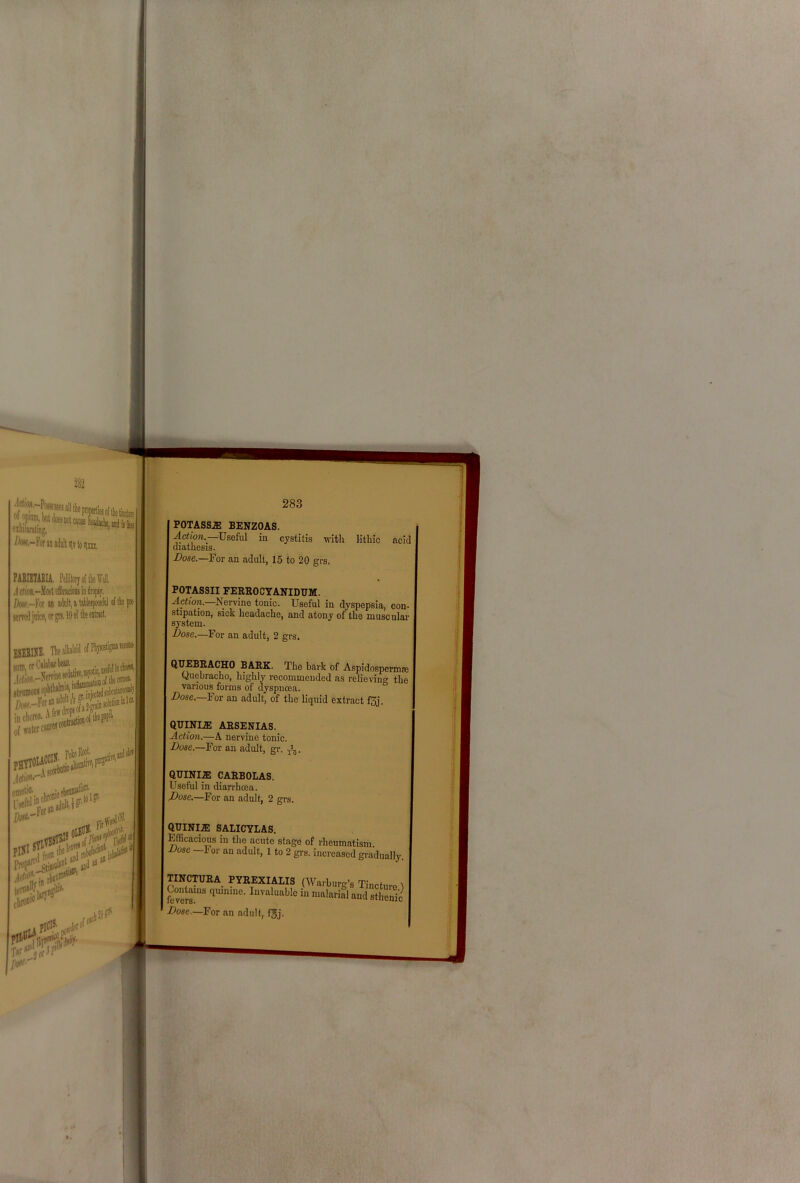 282
Action.—Possesses all the properties of the tincture
of opium, but does not cause headache, and is less
exhilarating.
Dose.—For an adult ♏v to ♏xxx.
PARIETARIA. Pellitory of the Wall.
Action.—Most efficacious in dropsy.
Dose.—For an adult, a tablespoonful of the pre-
served juice, or grs. 10 of the extract.
ESERINE. The alkaloid of Physostigma
or Calabar bean.
Action.—Nervine sedative, myotic, useful in chorea,
strumous ophthalmia, inflammation of the cornea.
Dose.—For an adult gr. injected subcutaneously
in chorea. A few drops of a 2-grain solution to 1 oz.
of water causes contraction of the pupil.
PHYTOLACCIN. Poke Root.
Action.—A alterative, purgative, and slow
emetic.
Useful in chronic rheumatism.
Dose.—For an adult, gr. to 1 gr.
PINI SYLVESTRIS OLEUM. Fir Wool Oil.
Prepared from the leaves of Pinus
Action.—Stimulant and rubefacient. Useful
in rheumatism, and as an inhalation in
chronic laryngitis.
PILULA PICIS.
Tar and powder of each
Dose.—2 or 3 pills daily.
283
POTASSÆ BENZOAS.
Action.—Useful in cystitis with lithic acid
diathesis.
Dose.—For an adult, 15 to 20 grs.
POTASSII FERROCYANIDUM.
Action.—Nervine tonic. Useful in dyspepsia, con-
stipation, sick headache, and atony of the muscular
system.
Dose.—For an adult, 2 grs.
QUEBRACHO BARK. The bark of Aspidospermæ
Quebracho, highly recommended as relieving the
various forms of dyspnœa.
Dose.—For an adult, of the liquid extract fʒj.
QUINIÆ ARSENIAS.
Action.—A nervine tonic.
Dose.—For an adult, gr.
QUINIÆ CARBOLAS.
Useful in diarrhœa.
Dose.—For an adult, 2 grs.
QUINIÆ SALICYLAS.
Efficacious in the acute stage of rheumatism.
Dose—For an adult, 1 to 2 grs. increased gradually.
TINCTURA PYREXIALIS (Warburg's Tincture.)
Contains quinine. Invaluable in malarial and sthenic
fevers.
Dose.—For an adult, fʒj.